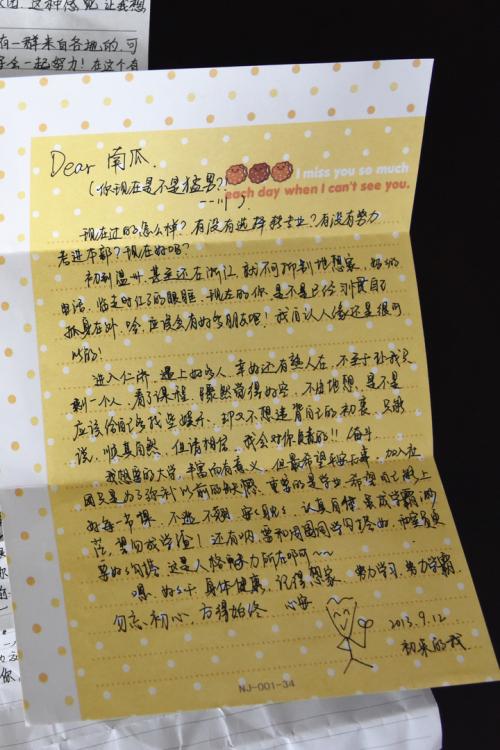 有一群来自各地的,可
一起努力!在这个有
Dear 南瓜,
I miss you so much
each day when I can't see you.
(你现在是不是猛男?!
现在过的怎么样?有没有选择转专业?有没有努力
考进本部?现在好吗?
初到温州,甚至还在浙江,就不可抑制地想家,妈妈的
电话,临走时红了的眼眶,现在的你是不是已经习惯自己
孤身在外,哈,应该会有好多朋友吧!我自认人缘还是很可
以的!
进入仁济,遇上好多人,幸好还有熟人在,不至于让我只
剩一个人,看了课程,骤然觉得好空,不由地想,是不是
应该给自己多找些娱乐,却又不想违背自己的初衷,只能
说,顺其自然,但请相信,我会对你负责的!!奋斗
我想要的大学,丰富而有意义,但最希望平安无事,加入社
团只是为了弥补以前的缺憾,重要的是学业,希望自己能上
好每一节课,不逃不翘,安 认真自修,表成学霸
范,望勿成学渣!还有呐,要和周围同学
要好 这是人格魅力所在啊~~
嗯,好好干,身体健康,记得想家,努力学习,努力学霸
勿忘初心,方得始终 心安
2013.9.12
初来的我
NJ-001-34